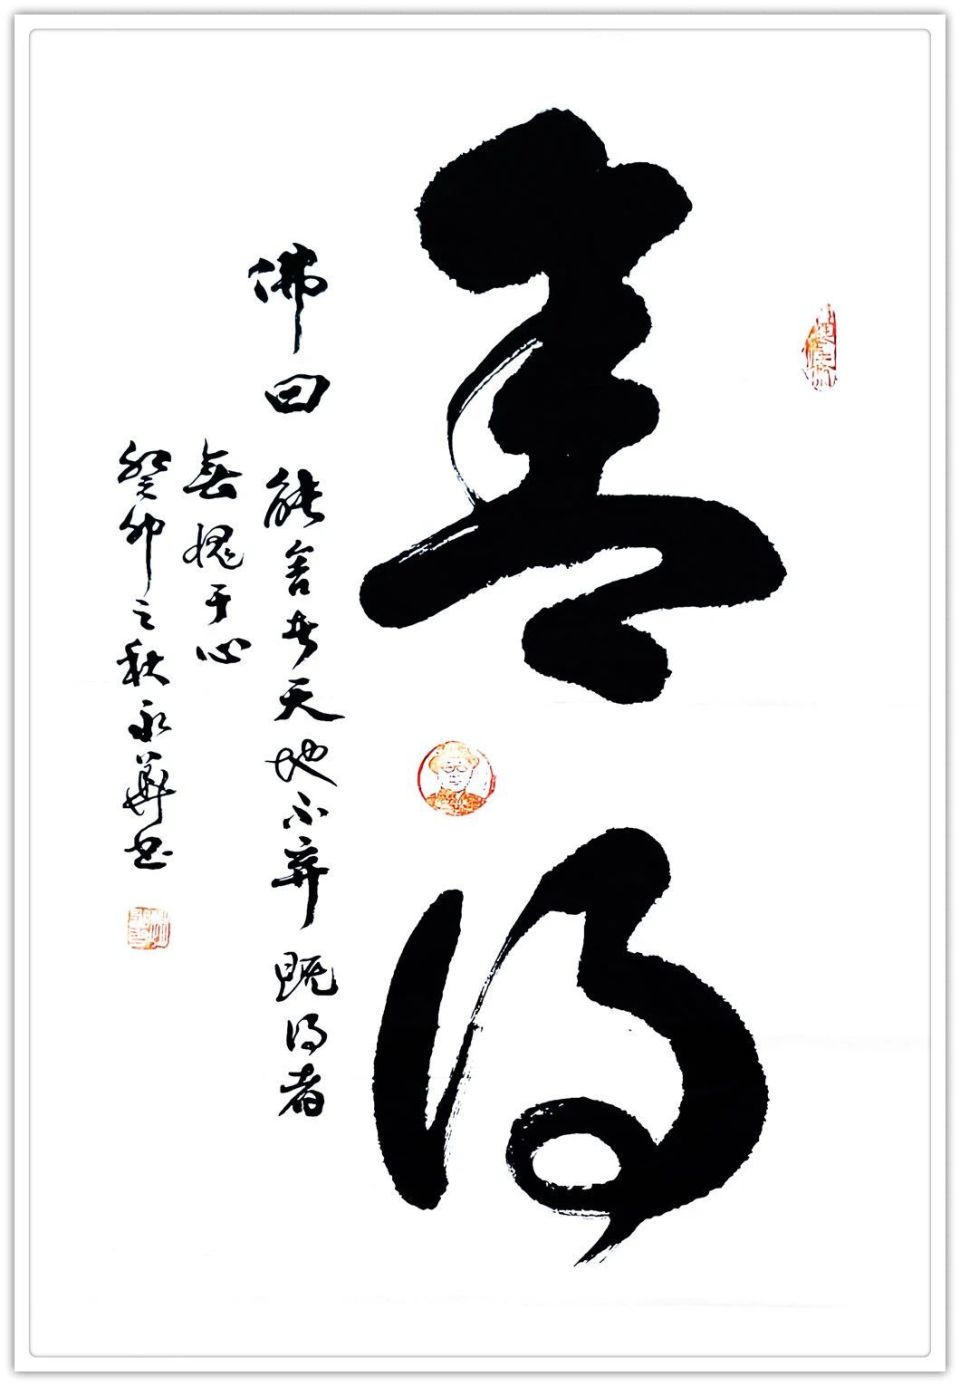 善得
佛曰 能舍者天地不弃 既得者
無愧于心
癸卯之秋永華书